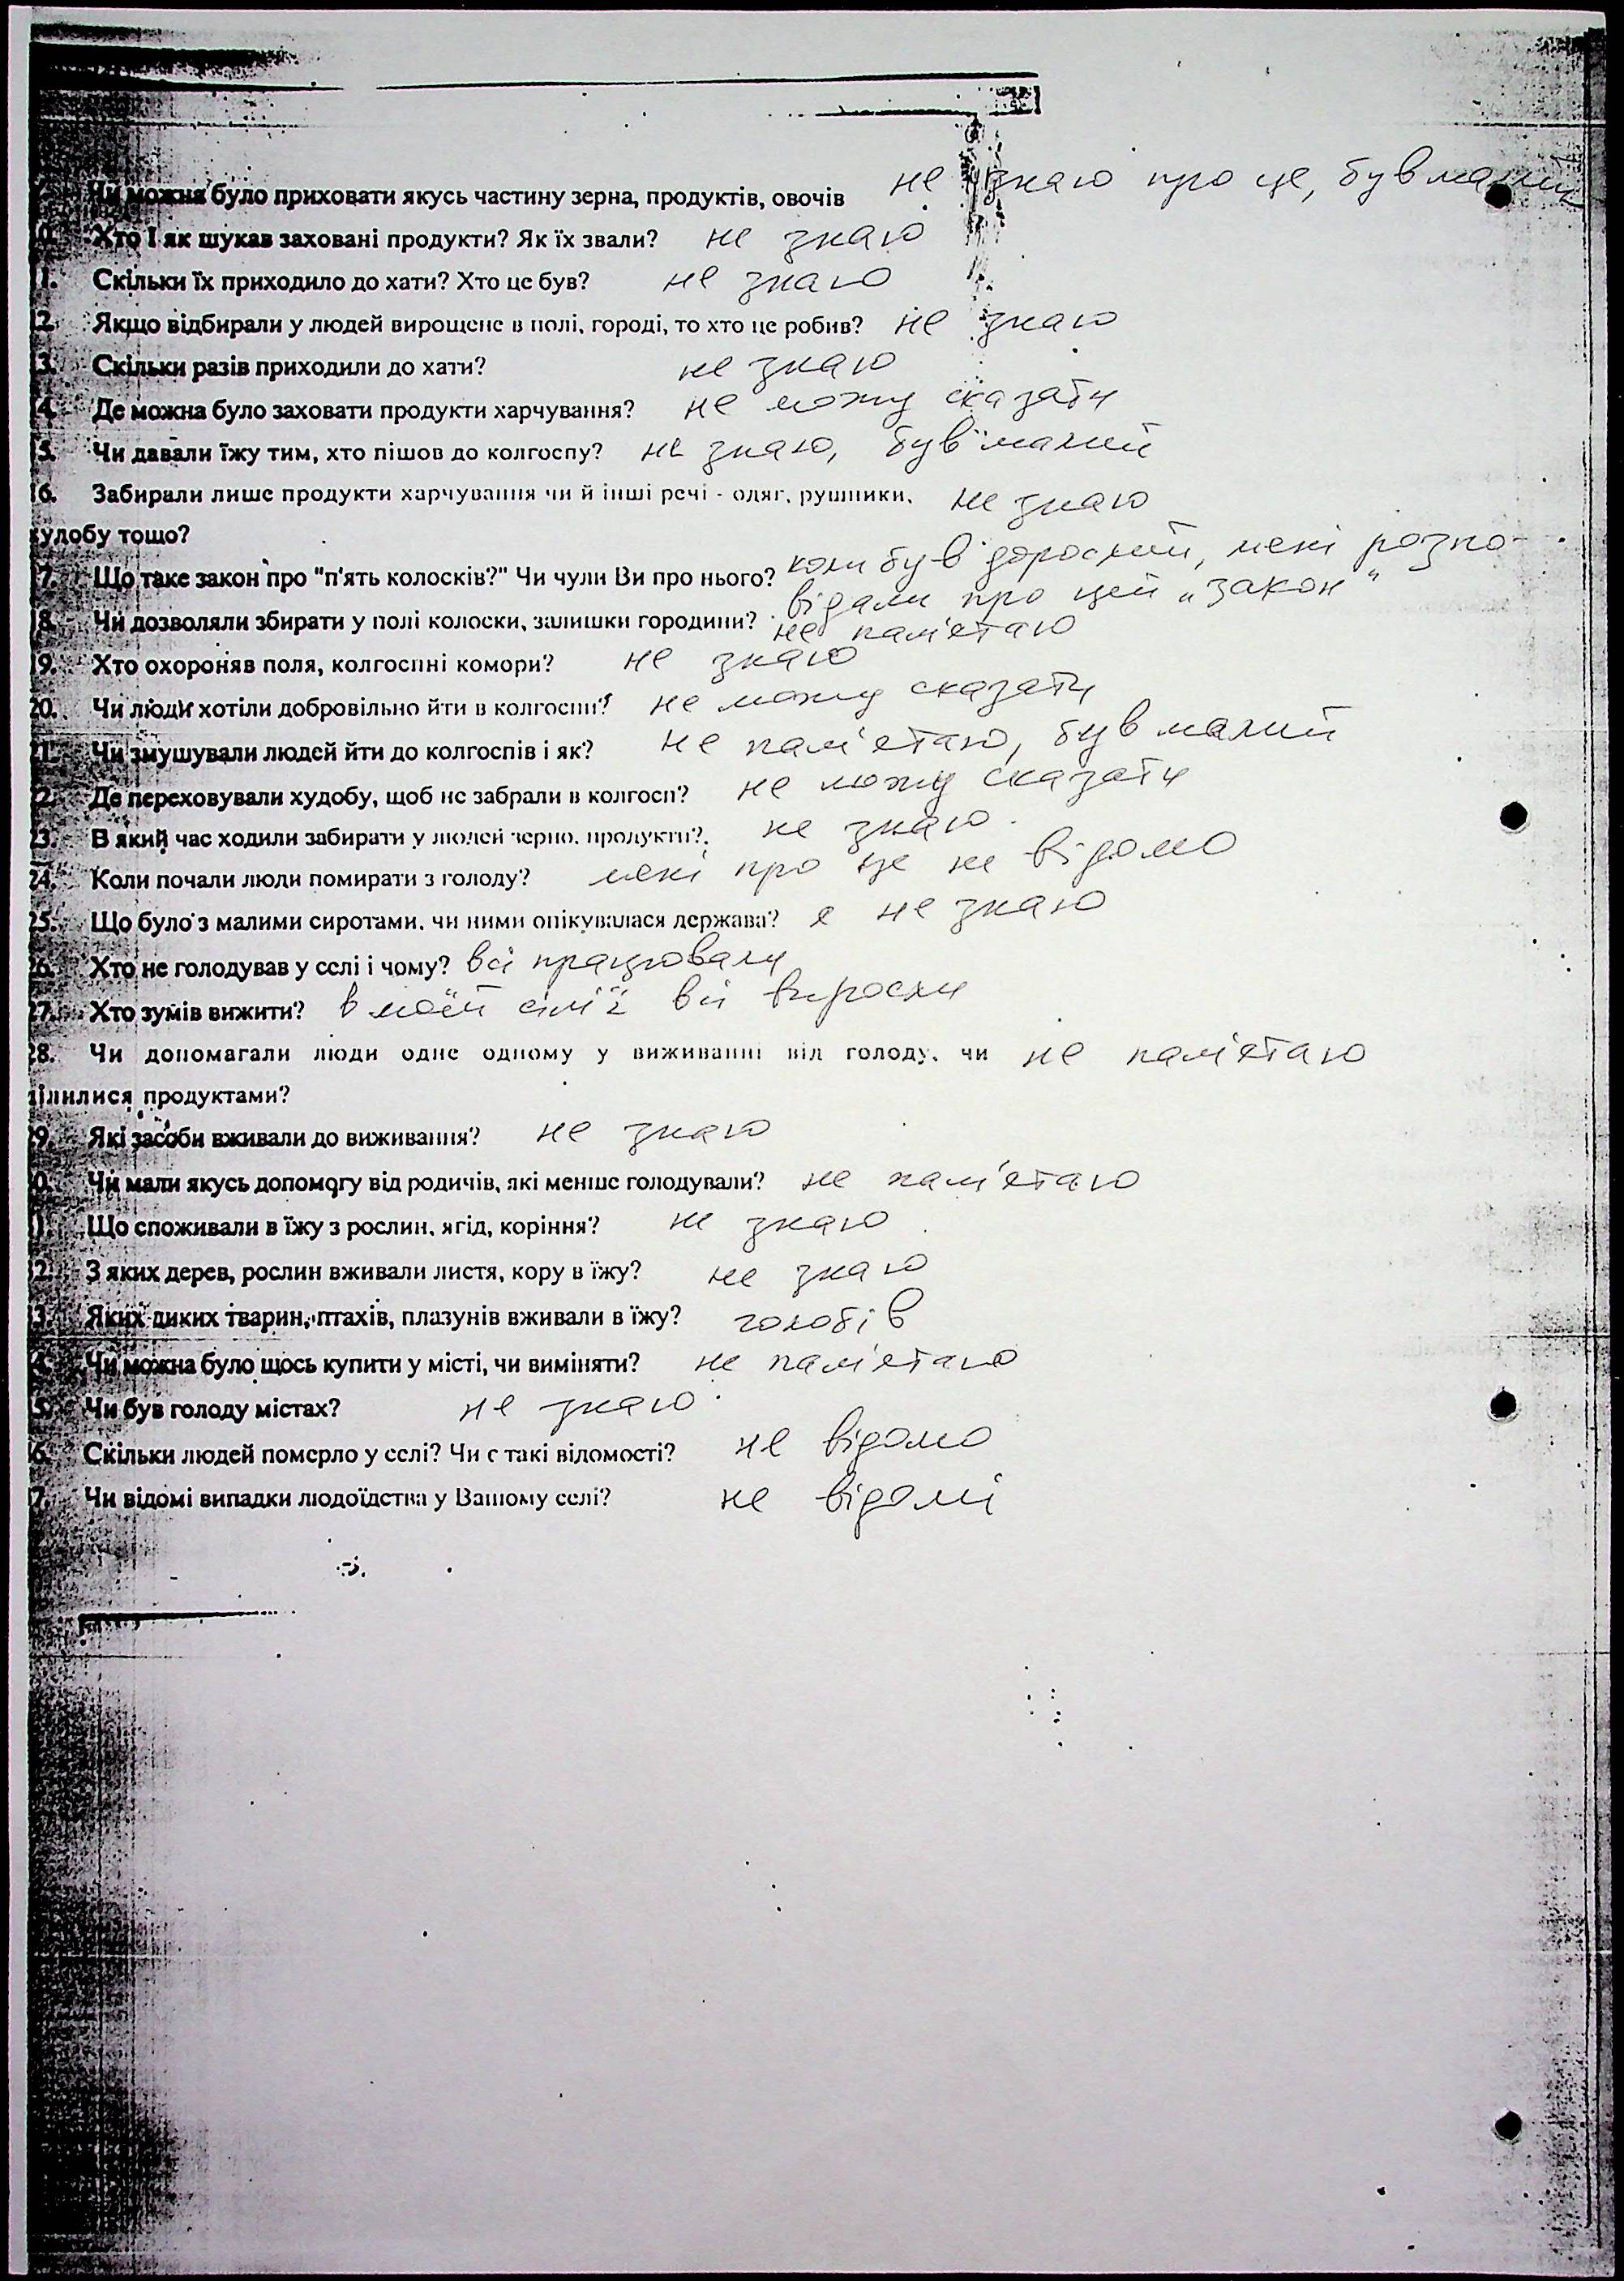 Чи можна було приховати якусь частину зерна, продуктів, овочів не знаю про це, був малий
0. Хто і як шукав заховані продукти? Як їх звали? не знаю
1. Скільки їх приходило до хати? Хто це був? не знаю
2. Якщо відбирали у людей вирощене в полі, городі, то хто це робив? не знаю
3. Скільки разів приходили до хати? не знаю
4. Де можна було заховати продукти харчування? не можу сказати
5. Чи давали їжу тим, хто пішов до колгоспу? не знаю, був малий
6. Забирали лише продукти харчування чи й інші речі - одяг, рушники, не знаю
худобу тощо?
7. Що таке закон про "п'ять колосків?" Чи чули Ви про нього? коли був дорослий, мені розпо-
відали про цей „закон"
8. Чи дозволяли збирати у полі колоски, залишки городини? не пам'ятаю
9. Хто охороняв поля, колгоспні комори? не знаю
20. Чи люди хотіли добровільно йти в колгоспи? не можу сказати
21. Чи змушували людей йти до колгоспів і як? не пам'ятаю, був малий
22. Де переховували худобу, щоб не забрали в колгосп? не можу сказати
23. В який час ходили забирати у людей зерно, продукти? не знаю.
24. Коли почали люди помирати з голоду? мені про це не відомо
25. Що було з малими сиротами, чи ними опікувалася держава? я не знаю
26. Хто не голодував у селі і чому? всі працювали
27. Хто зумів вижити? в моїй сім'ї всі виросли
28. Чи допомагали люди одне одному у виживанні від голоду, чи не пам'ятаю
ділилися продуктами?
29. Які засоби вживали до виживання? не знаю
0. Чи мали якусь допомогу від родичів, які менше голодували? не пам'ятаю
1. Що споживали в їжу з рослин, ягід, коріння? не знаю
32. З яких дерев, рослин вживали листя, кору в їжу? не знаю
3. Яких диких тварин, птахів, плазунів вживали в їжу? голобів
4. Чи можна було щось купити у місті, чи виміняти? не пам'ятаю
5. Чи був голод у містах? не знаю
6. Скільки людей померло у селі? Чи є такі відомості? не відомо
7. Чи відомі випадки людоїдства у Вашому селі? не відомі